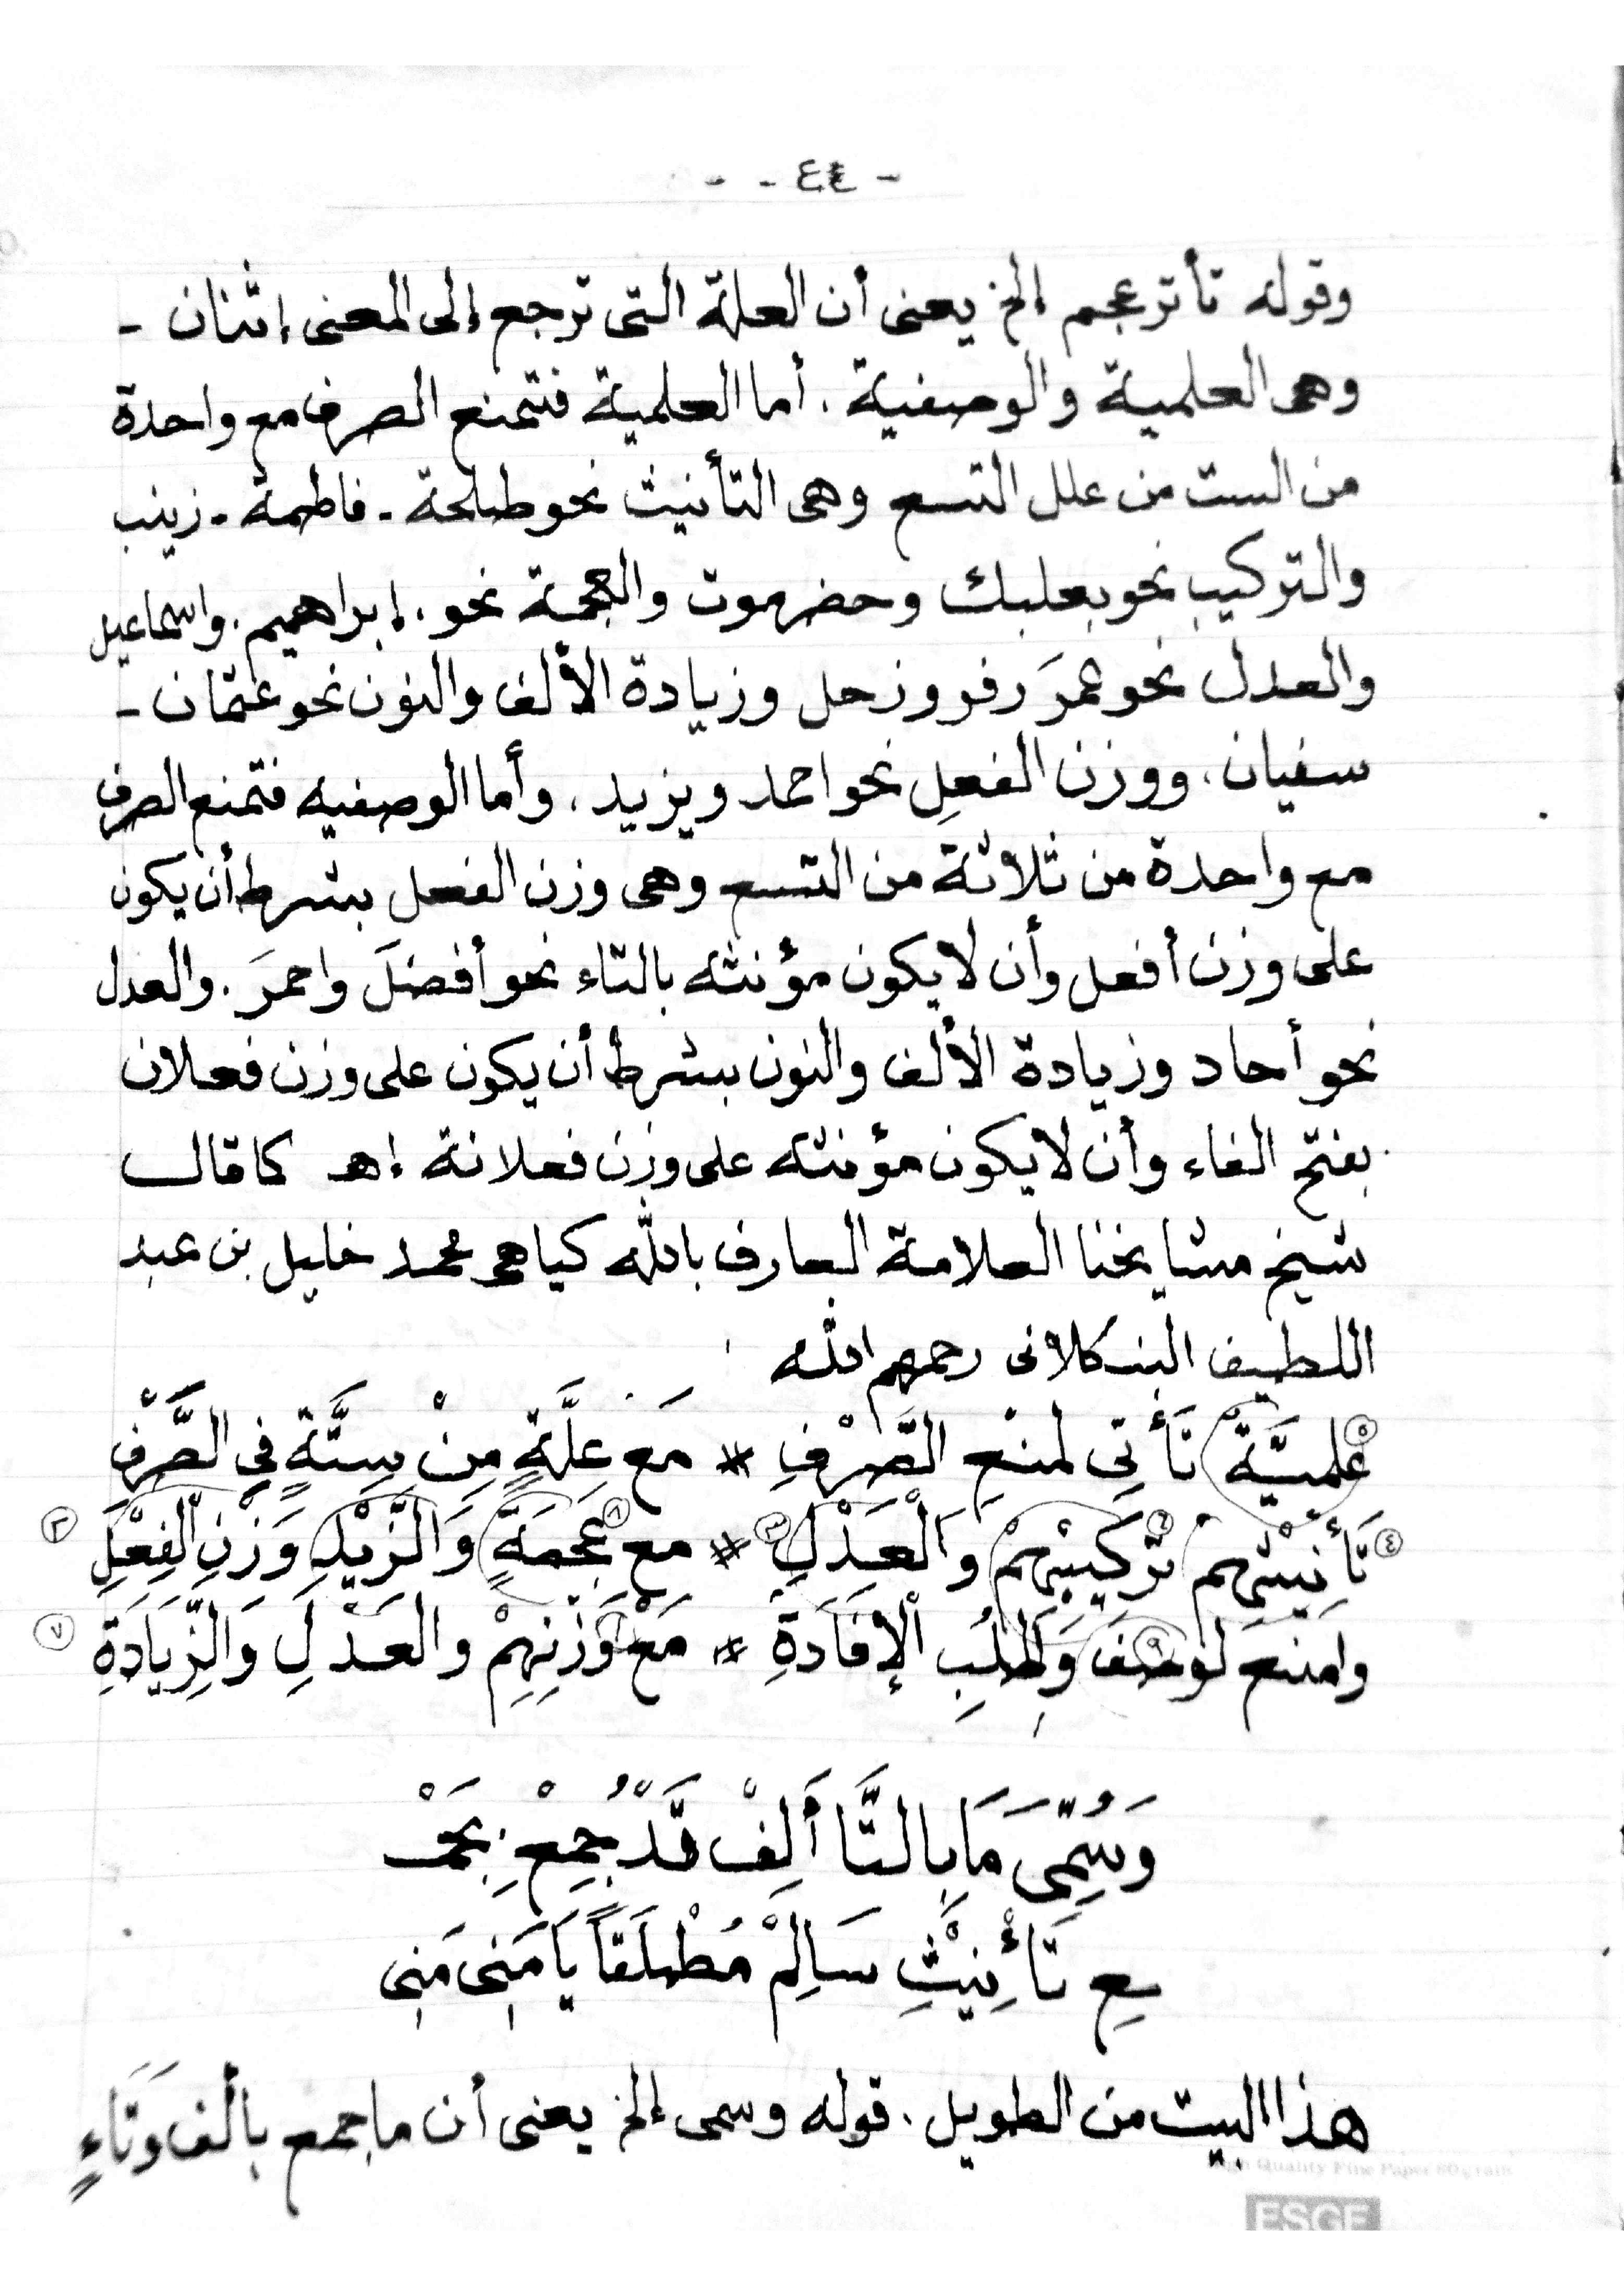 - ٤٤ - -
وقوله تأتر عجم إلخ يعنى أن العلة التى ترجع إلى المعنى إثنان -
وهى العلمية والوصفية . أما العلمية فتمنع الصرف مع واحدة
من الست من علل التسع وهى التأنيث نحو طلحة - فاطمة - زينب
والتركيب نحو بعلبك وحضرموت والعجمة نحو . إبراهيم . واسماعيل
والعدل نحو عمرَ زفر وزحل وزيادة الألف والنون نحو عثمان -
سفيان . ووزن الفعلِ نحو احمد ويزيد . وأما الوصفيه فتمنع الصرف
مع واحدة من ثلاثة من التسع وهى وزن الفعل بشرط أن يكون
على وزن أفعل وأن لا يكون مؤنثه بالتاء نحو أفضلَ واحمرَ . والعدل
نحو أحاد وزيادة الألف والنون بشرط أن يكون على وزن فعلان
بفتح الفاء وأن لا يكون مؤنثه على وزن فعلانة إهـ كما قال
شيخ مشايخنا العلامة العارف بالله كياهى محمد خليل بن عبد
اللطيف البنكلانى رحمهم الله
٥ عَلَمِيَّةٌ تَأْتِى لمنعِ الصَّرْفِ * مَع عِلَّةٍ مِنْ سِتَّةٍ فِي الصَّرْفِ
٤ تَأْنِيْثِهِمْ تَرْكِيْبِهِمْ ٦ وَالْعَدْلِ ٣ * مع عُجْمَةٍ ٨ وَالزَّيْدِ وَزْنِ الْفِعْلِ ٢
وامنع لوصف وَاطْلُبِ ٩ الْإِفَادَةِ * مَعْ وَزْنِهِمْ والعَدْلِ وَالزِّيَادَةِ ٧
وَسُمِّىَ مَا بِالتَّا أَلِفْ قَدْ جُمِعْ بِجَمْـ
ـعِ تَأْنِيْثِ سَالِمْ مُطْلَقاً يَا مَنِى مَنِى
هذا البيت من الطويل . قوله وسمى إلخ يعنى أن ما جمع بألف وَتَاءٍ
High Quality Fine Paper 60 gram
ESGE